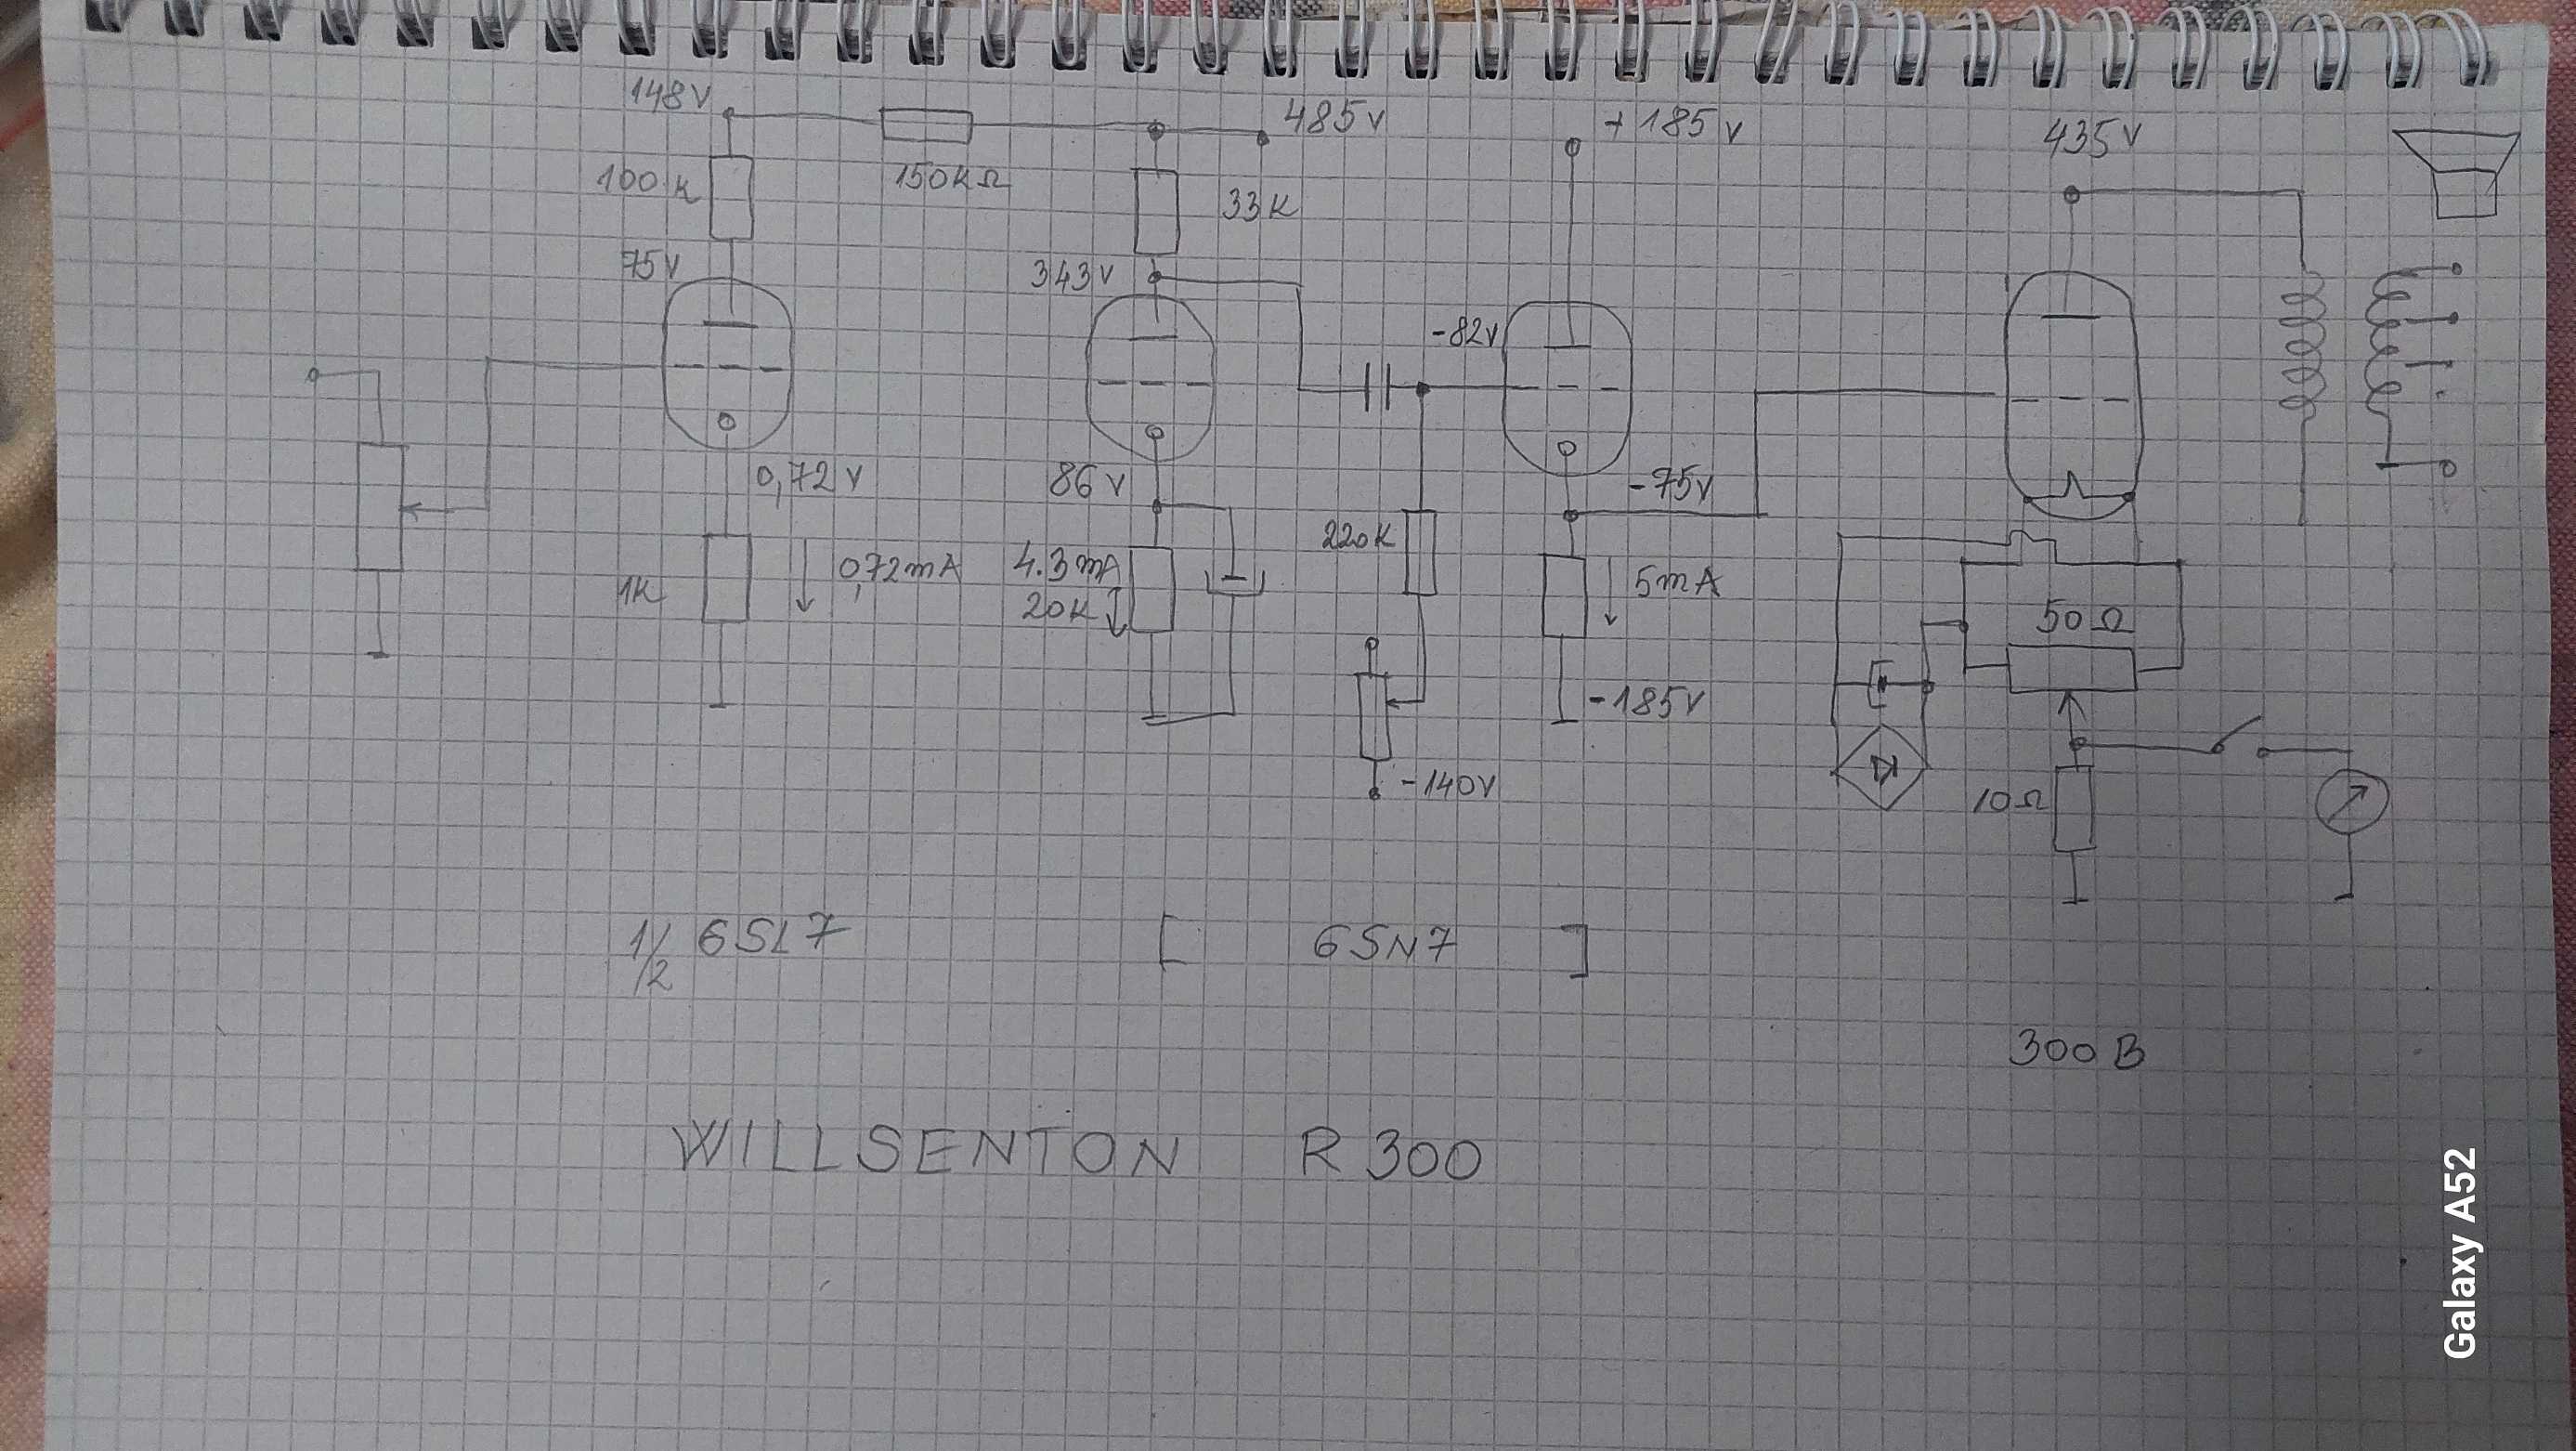 148V
485V
+185V
435V
100K
150KΩ
33K
75V
343V
-82V
0,72V
86V
-75V
1K
0,72mA
4.3mA
20K
220K
5mA
50Ω
-185V
-140V
10Ω
1/2 6SL7
[ 6SN7 ]
300B
WILLSENTON R300
Galaxy A52